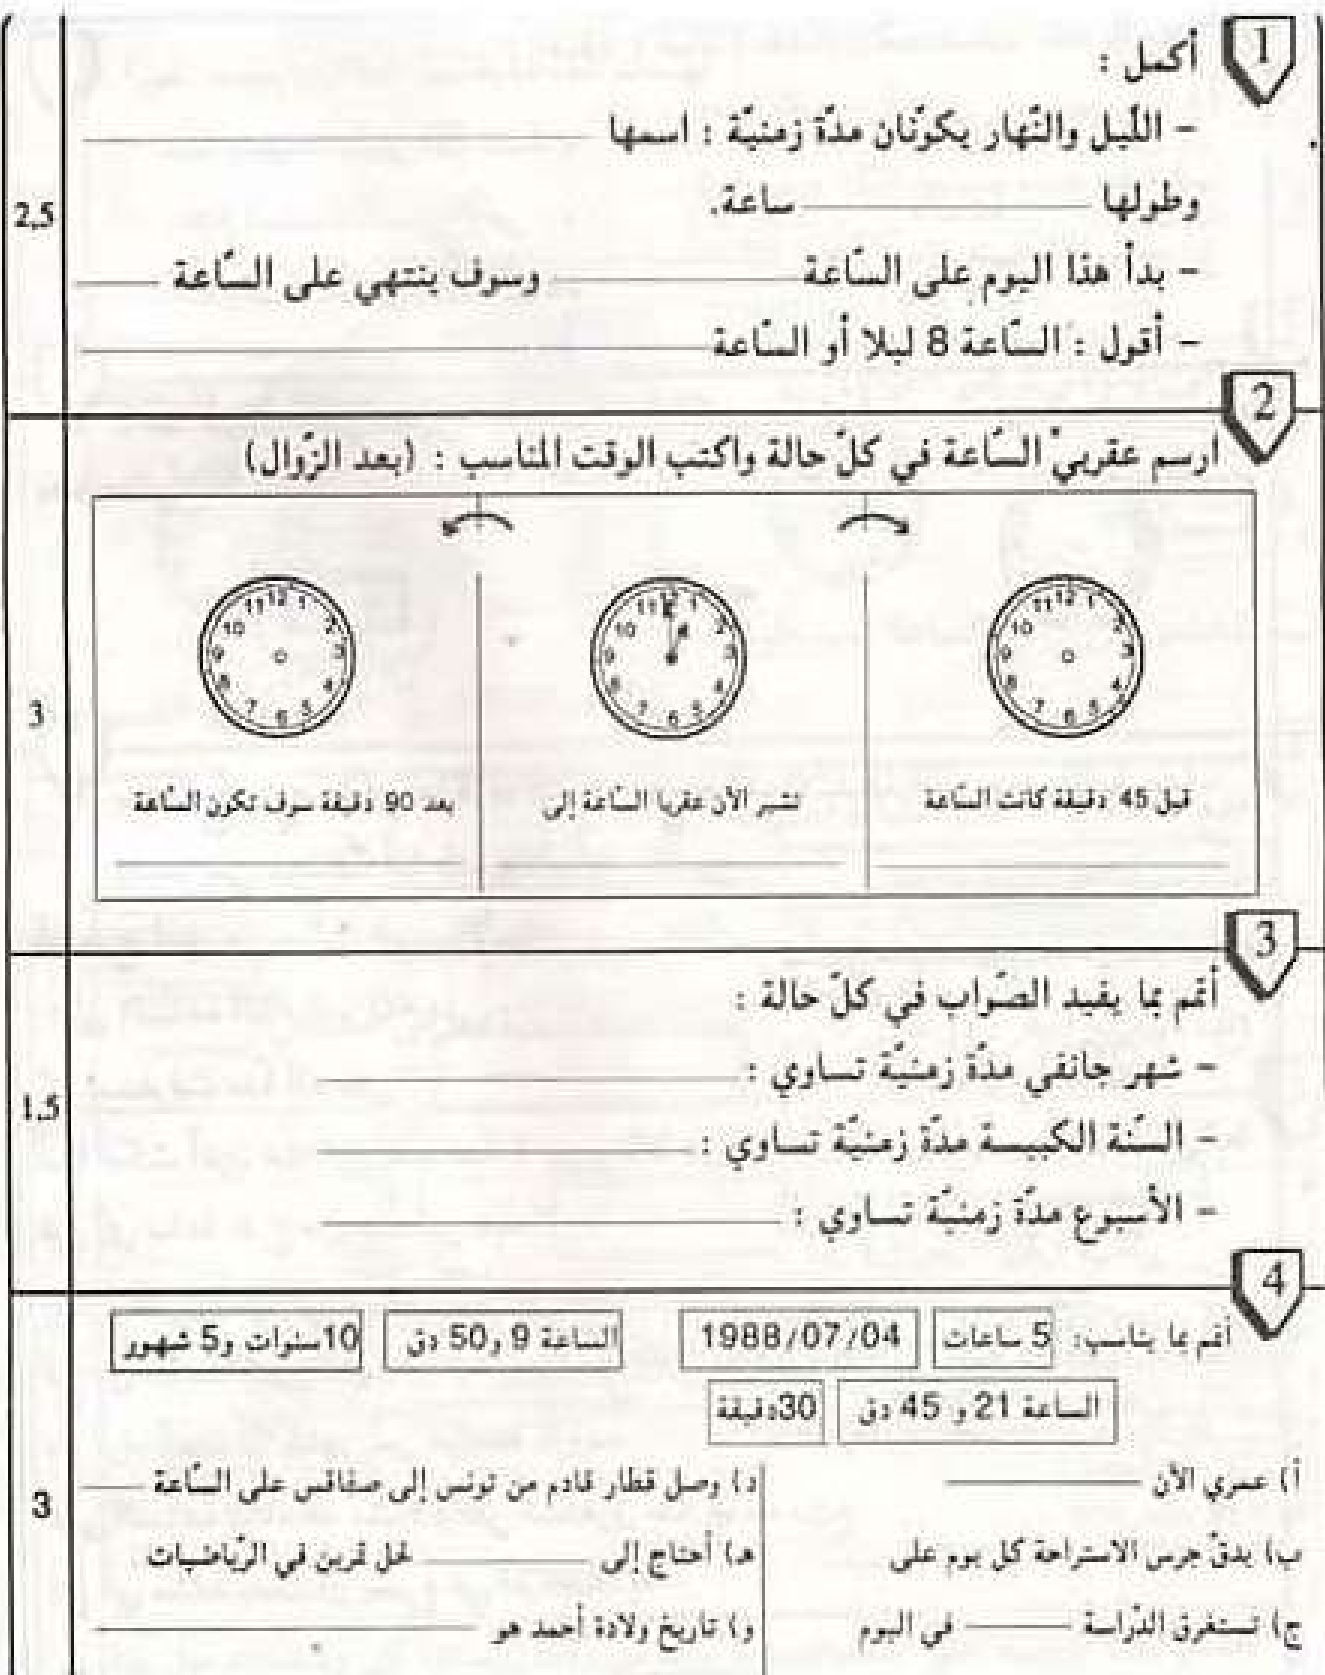 1
أكمل :
– اللّيل والنّهار يكوّنان مدّة زمنيّة : اسمها
وطولها ساعة.
2,5
– بدأ هذا اليوم على السّاعة وسوف ينتهي على السّاعة
– أقول : السّاعة 8 ليلا أو السّاعة
2
ارسم عقربيْ السّاعة في كلّ حالة واكتب الوقت المناسب : (بعد الزّوال)
12 1 2 3 4 5 6 7 8 9 10 11
12 1 2 3 4 5 6 7 8 9 10 11
12 1 2 3 4 5 6 7 8 9 10 11
3
قبل 45 دقيقة كانت السّاعة
تشير الآن عقربا السّاعة إلى
بعد 90 دقيقة سوف تكون السّاعة
3
أتمم بما يفيد الصّواب في كلّ حالة :
– شهر جانفي مدّة زمنيّة تساوي :
1.5
– السّنة الكبيسة مدّة زمنيّة تساوي :
– الأسبوع مدّة زمنيّة تساوي :
4
أتمم بما يناسب: 5 ساعات 1988/07/04 الساعة 9 و50 دق 10سنوات و5 شهور
الساعة 21 و 45 دق 30دقيقة
3
أ) عمري الآن
ب) يدقّ جرس الاستراحة كل يوم على
ج) تستغرق الدّراسة في اليوم
د) وصل قطار قادم من تونس إلى صفاقس على السّاعة
هـ) أحتاج إلى لحل تمرين في الرّياضيات
و) تاريخ ولادة أحمد هو